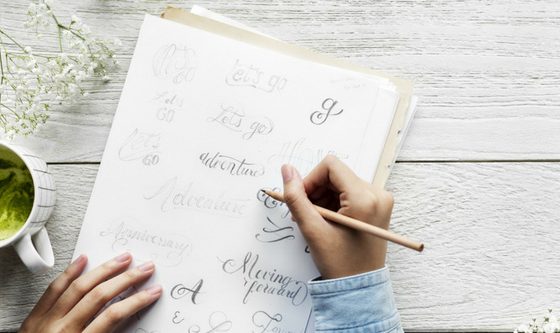 Go
Let's go
g
Let's
GO
Let's go
Let's
GO
Adventure
Adventure
Anniversary
Moving
forward
A
&